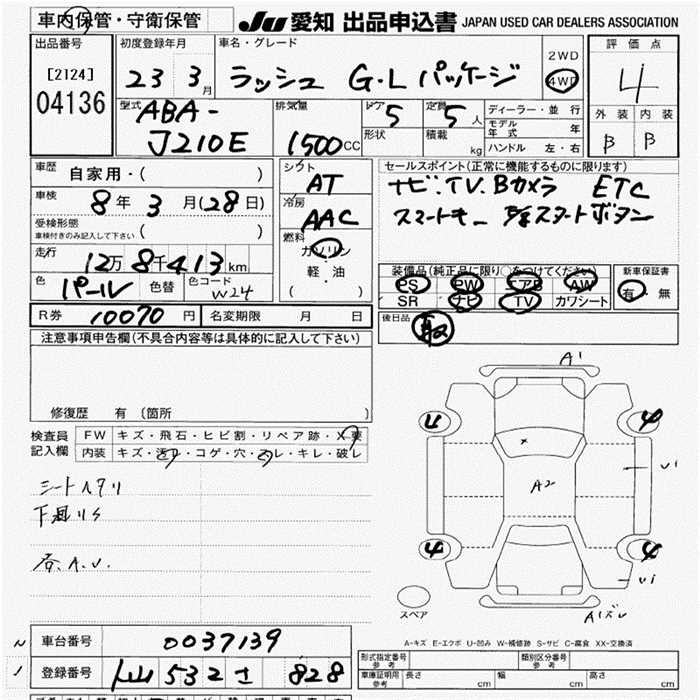 車内保管・守衛保管
JU 愛知 出品申込書 JAPAN USED CAR DEALERS ASSOCIATION
出品番号
[2124]
04136
初度登録年月
23 3月
車名・グレード
ラッシュ G・Lパッケージ
2WD
4WD
評価点
4
外装 内装
B B
型式
ABA-
J210E
排気量
1500cc
ドア 5
形状
定員 5人
積載 kg
ディーラー・並行
モデル年式 年
ハンドル 左・右
車歴
自家用・( )
車検
8年3月(28日)
受検形態
車検付きのみ記入して下さい ( )
走行
12万8千413km
色
パール
色替
色コード
W24
シフト
AT
冷房
AAC
燃料
ガソリン
軽・油
( )
セールスポイント(正常に機能するものに限ります)
ナビ.TV.Bカメラ ETC
スマートキー スタートボタン
装備品(純正品に限り○をつけてください)
PS PW エアB AW
SR ナビ TV カワシート
新車保証書
有・無
後日品
取
R券 10070円
名変期限 月 日
注意事項申告欄(不具合内容等は具体的に記入して下さい)
修復歴 有(箇所 )
検査員
記入欄
FW キズ・飛石・ヒビ割・リペア跡・X要
内装 キズ・汚れ・コゲ・穴・スレ・キレ・破レ
シートヘタリ
下廻りS
A1
4 4
U1
A2
4 4
U1
A1ズレ
スペア
A-キズ E-エクボ U-凹み W-補修跡 S-サビ C-腐食 XX-交換済
車台番号 0037139
登録番号 532 さ 828
形式指定番号
参考
類別区分番号
参考
車庫証明用
参考
長さ cm 幅 cm 高さ cm